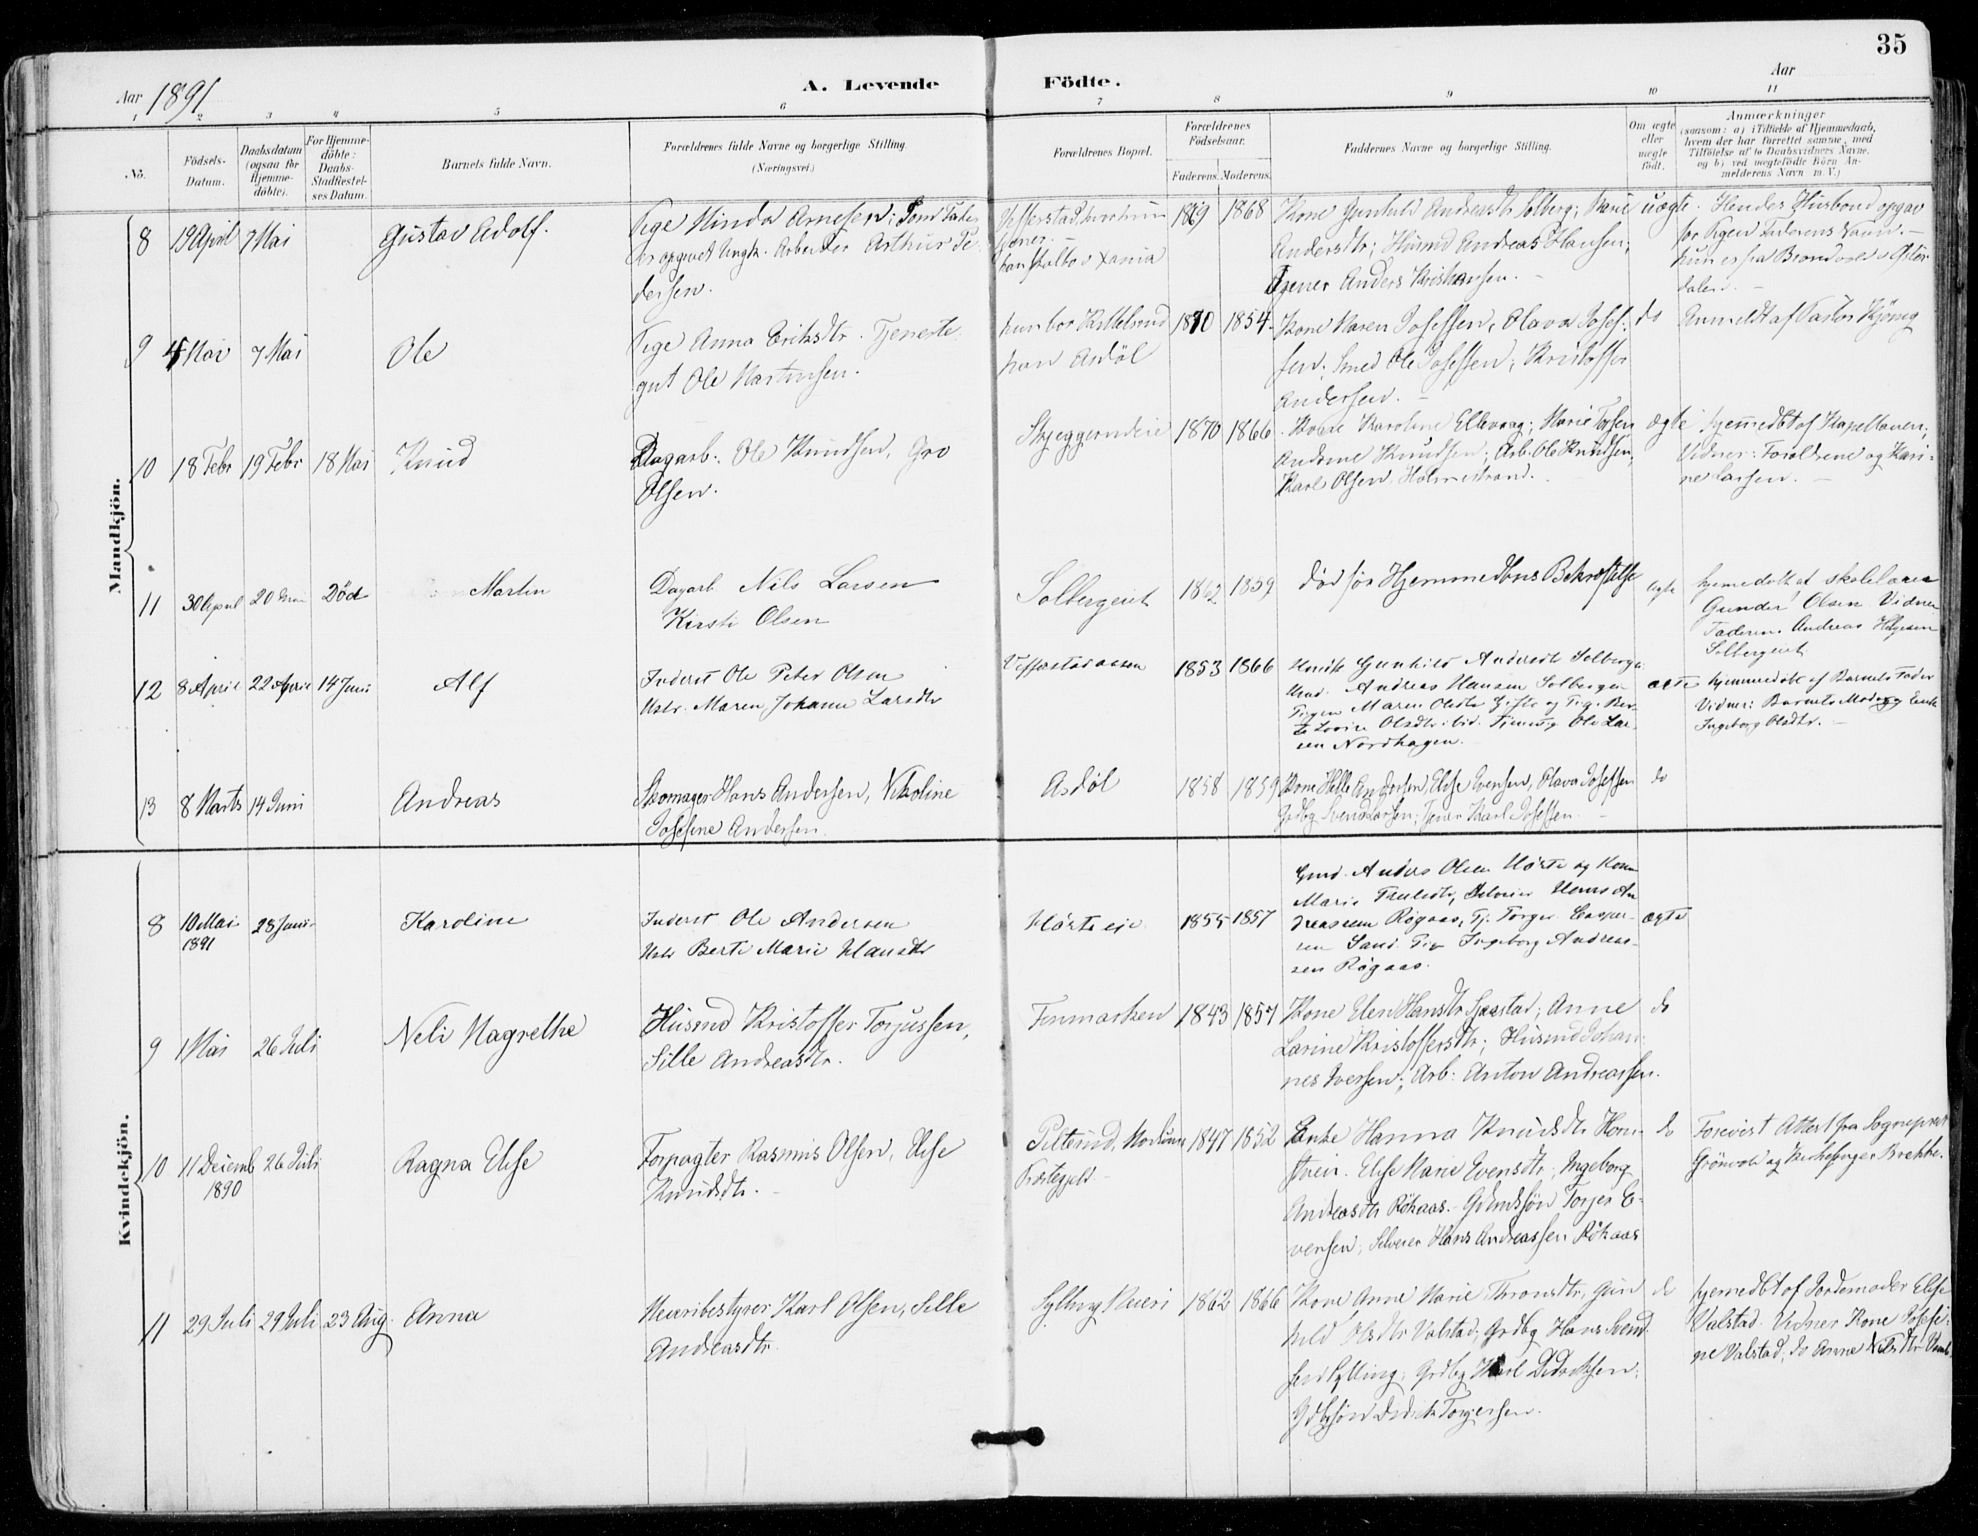 35
Aar 1891
A. Levende Födte.
Aar
1 2 3 4 5 6 7 8 9 10 11
No.
Födsels-Datum.
Daabsdatum (ogsaa for Hjemme-döbte).
For Hjemme-döbte: Daabs-Stadfæstel-ses Datum.
Barnets fulde Navn.
Forældrenes fulde Navne og borgerlige Stilling (Næringsvei.)
Forældrenes Bopæl.
Forældrenes Födselsaar.
Faderens. Moderens.
Faddernes Navne og borgerlige Stilling.
Om ægte eller uægte født.
Anmærkninger
(saasom: a) i Tilfælde af Hjemmedaab, hvem der har forrettet samme, med Tilföielse af to Daabsvidners Navne, og b) ved uegtefödte Börn Anmelderens Navn m. V.)
Mandkjön.
8 19 April 7 Mai Gustav Adolf.
Pige Minda Arnesen; Som Fader
er opgivet Ungk. Arbeider Arthur Pedersen.
1869 1868
Kone Gunhild Andreasdtr Solberg; Marie
Andersdtr; Husmd Andreas Hansen;
Tjener Anders Kristiansen.
uægte. Hendes Husbond opgav
for Pigen Faderens Navn.
hun er fra Brandval i Österdalen.
9 4 Mai 7 Mai Ole
Pige Anna Eriksdtr. Tjeneste
gut Ole Martinsen.
hun bor Kittelsrud
han Asdöl
1870 1854
Kone Maren Josefsen, Olava Josefsen;
Smed Ole Josefsen; Kristoffer
Andersen.
do Anmeldt af Pastor Kjönig
10 18 Febr 19 Febr 18 Mai Knud
Dagarb. Ole Knudsen, Gro
Olsen.
1870 1866
Kone Karoline; Marie
Andrine Knudsen; Arb. Ole Knudsen,
Karl Olsen, Holmestrand.
ægte hjemmedöbt af Kapellanen;
Vidner: Forældrene og Karine Larsen.
11 30 April 20 Død Martin
Dagarb Nils Larsen
Kirsti Olsen
Solbergeiet 1862 1859
død før Hjemmedåbens Bekræftelse
ægte hjemmedøbt af skolelærer
Gunder Olsen Vidner
Faderen Andreas Helgesen
Solbergeiet
12 8 April 22 April 14 Juni Alf
Inderst Ole Peter Olsen
Hstr. Maren Johanne Larsdtr
1853 1866
Gunhild Andersdtr Solberg
Andreas Hansen Solberg
Pigen Maren Olsdtr
Olsdtr
Ole Larsen Nordhagen.
ægte hjemmedøbt af Barnets Fader
Vidner: Barnets Moder og Enke
Ingeborg Olsdtr.
13 8 Marts 14 Juni Andreas
Skomager Hans Andersen, Nikoline
Josefine Andersen
Asdøl 1858 1859
Kone Helle Andersen, Else Evensen, Olava Josefsen
Grdbg Svend Larsen; Tjener Karl Josefsen.
do
Kvindekjön.
8 10 Mai 1891 28 Juni Karoline
Inderst Ole Andersen
Hstr Berte Marie Hansdtr
Hörte eie 1855 1857
Gmd. Anders Olsen Hörte og Kone
Marie Trulsdtr, Selveier Hans Andreassen Røgaas, Tj. Torger Caspersen Sand Pig Ingeborg Andreassen Røgaas.
ægte
9 1 Mai 26 Juli Neli Magrethe
Husmd Kristoffer Torjussen,
Sille Andreasdtr.
Finmarken 1843 1857
Kone Elen Hansdtr; Anne
Larine Kristoffersdtr; Husmd Johannes Iversen; Arb: Anton Andreassen.
do
10 11 Decemb 1890 26 Juli Ragna Else
Forpagter Rasmus Olsen, Else
Knudsdtr.
Modum
Præstegjeld
1847 1852
Enke Hanna Knudsdtr
Else Marie Evensdtr; Ingeborg
Andreasdtr Röhaas. Gdmdsön Torjer Evensen; Selveier Hans Andreassen Röhaas
do Forevist Attest fra Sogneprest
Grönvold og Kirkesanger Brekke.
11 29 Juli 29 Juli 23 Aug. Anna
Meieribestyrer Karl Olsen, Sille
Andreasdtr.
Sylling Meieri 1862 1866
Kone Anne Marie Thronsdtr, Gunhild Olsdtr Valstad; Grdbg Hans Svendsen Sylling; Grdbg Karl Didriksen;
Gdbgsön Didrik Torgersen.
do hjemedöbt af Jordemoder Else
Valstad. Vidner Kone Josefine Valstad, do Anne Nilsdtr